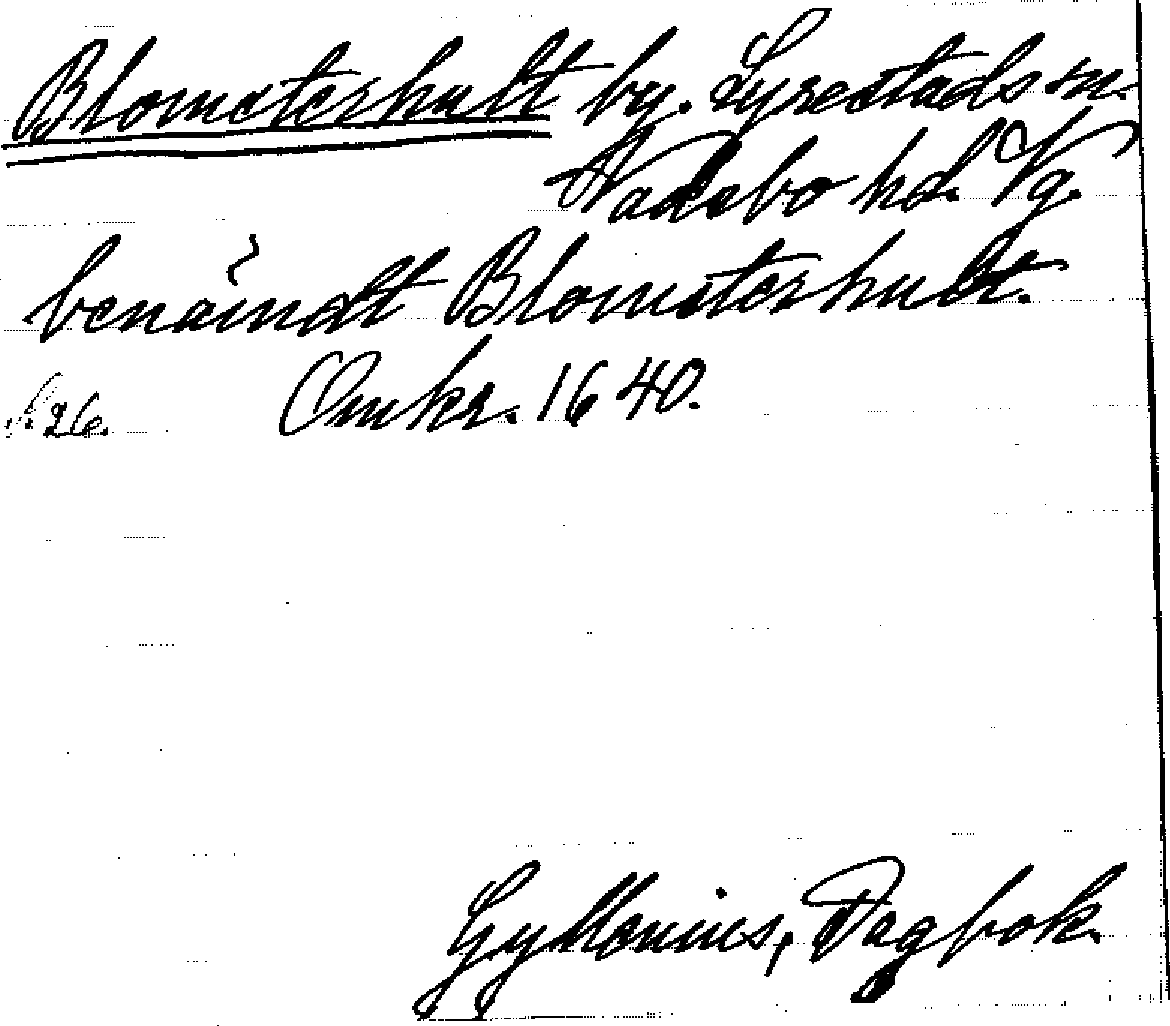 Blomsterhult by. Lyrestads sn.
Wadsbo hd. Vg.
benämndt Blomsterhult.
S. 26. Omkr. 1640.
Gyllenius, Dagbok.